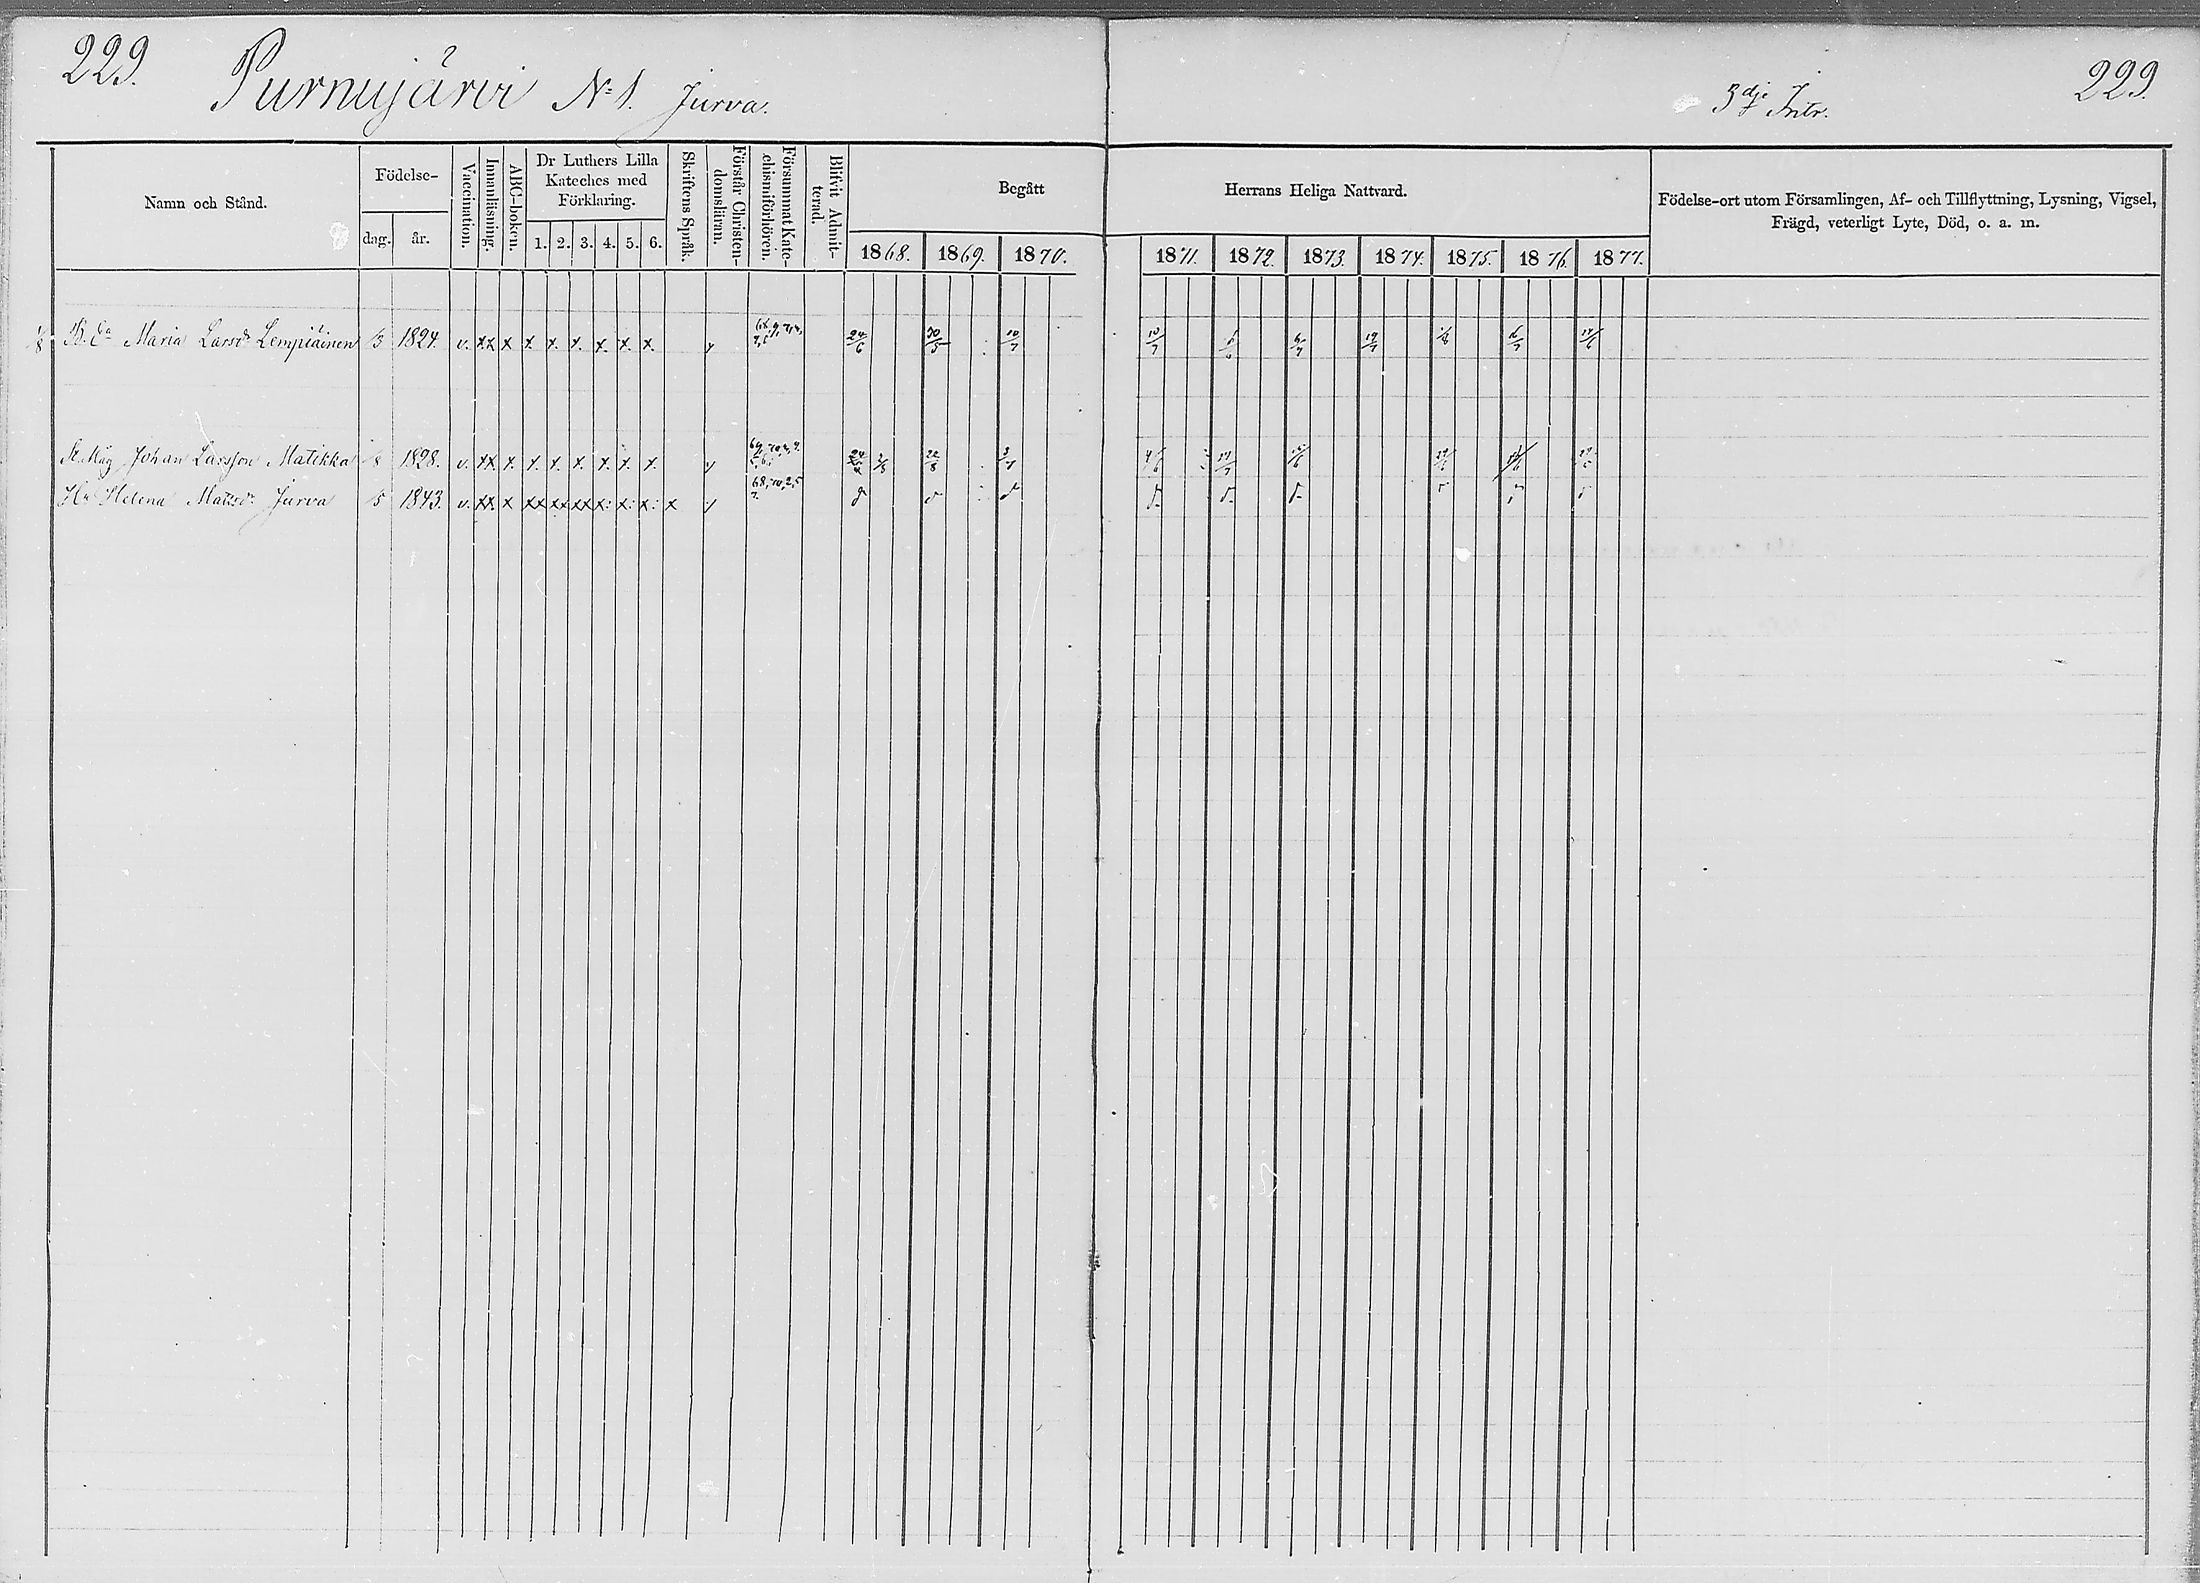 229. Purnujärvi N:1. Jurva. 3dje Intr. 229.
Namn och Stånd. Födelse- dag. år. Vaccination. Innanläsning. ABC-boken. Dr Luthers Lilla Kateches med Förklaring. 1. 2. 3. 4. 5. 6. Skriftens Språk. Förstår Christendomsläran. Försummat Katechismiförhören. Blifvit Admitterad. Begått Herrans Heliga Nattvard. 1868. 1869. 1870. 1871. 1872. 1873. 1874. 1875. 1876. 1877. Födelse-ort utom Församlingen, Af- och Tillflyttning, Lysning, Vigsel, Frägd, veterligt Lyte, Död, o. a. m.
Maria Larsdr Lempiäinen 1824. v. xx x x x. x. x. x. x. 24/6 30/5 10/7 10/7
St. Måg Johan Larsson Matikka 1828. v. xx x. x. x. x. x. x. x. 22/8
Hu Helena Matsdr Jurva 1843. v. xx. x xx xx xx x: x: x: x